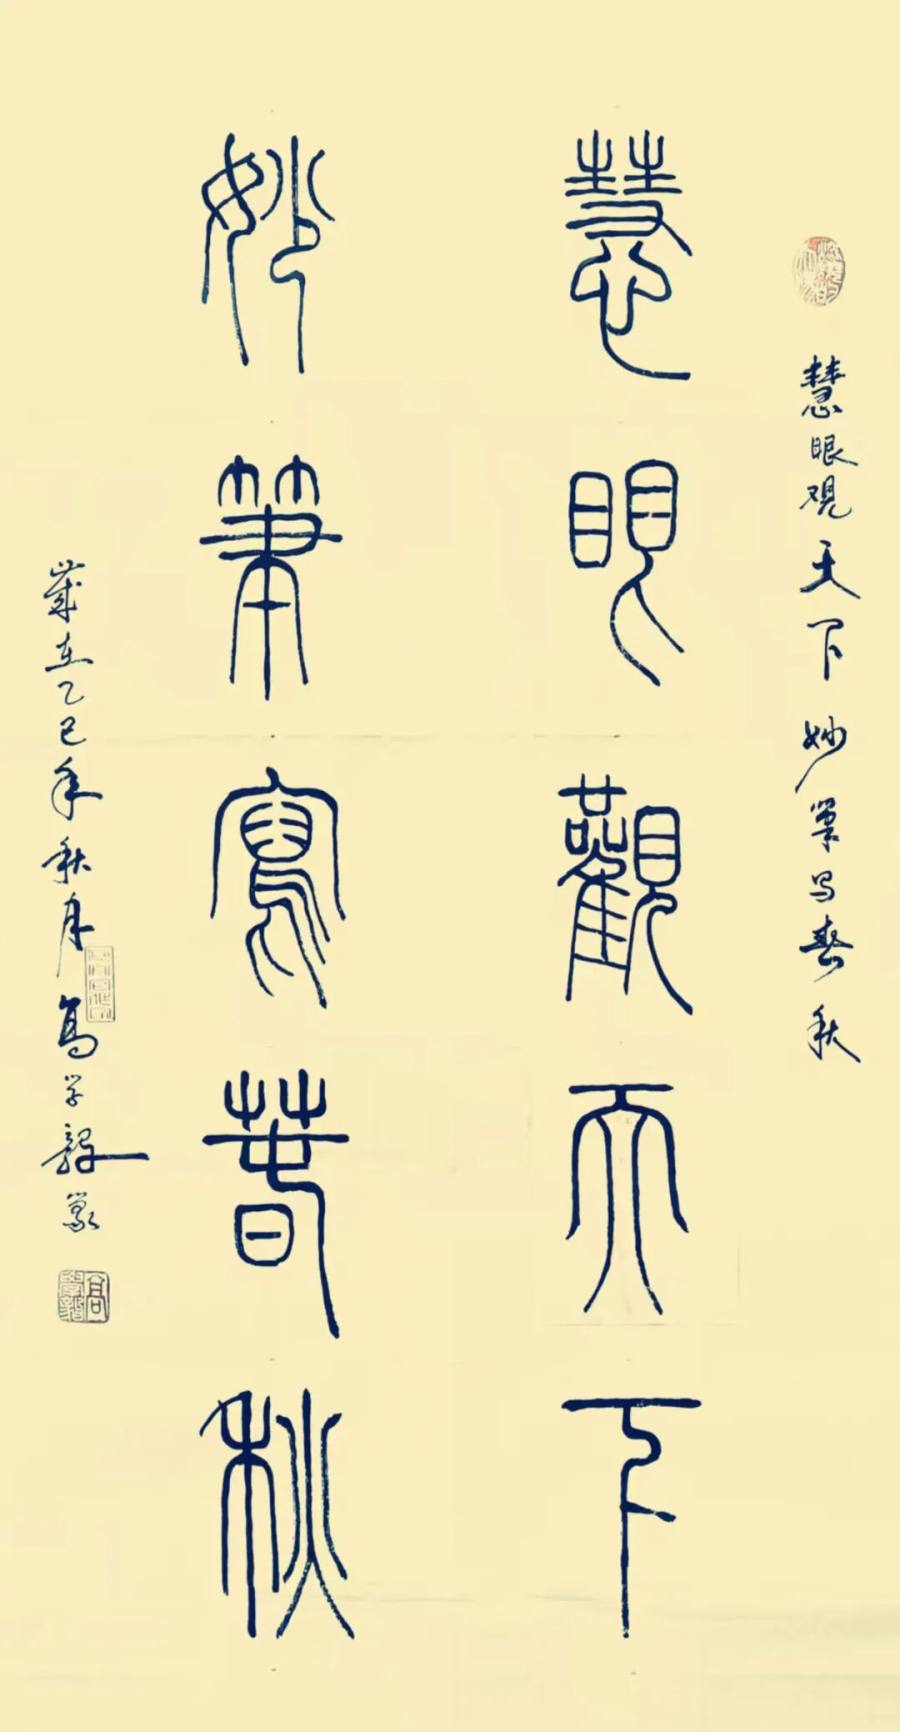 慧眼观天下妙笔写春秋
慧眼觀天下
妙筆寫春秋
岁在乙巳年秋月高学毅篆
高學毅